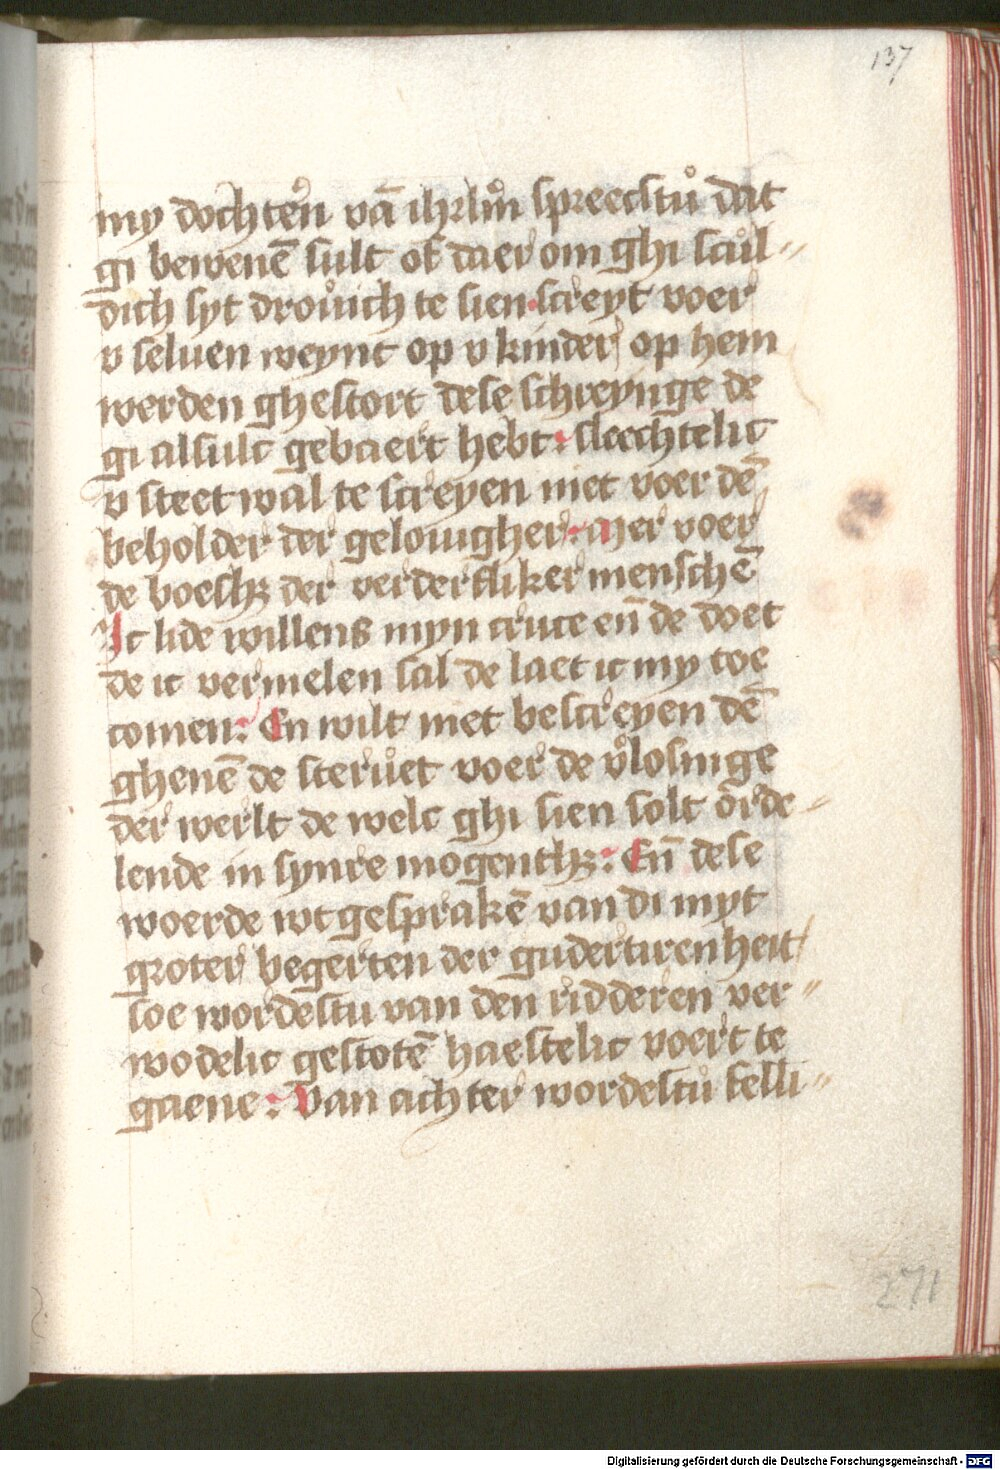 137
my dochterͤn vā ihrl̄m̊ spreecstů dat
gi bewenē sult of daer om ghi scůl⸗
dich syt droůich te sien. screyt voer
v seluen weynt op v kinder / op hem
werden ghestort dese schreynge de
gi alsulc gebaert hebt: slechtelic
v steet wal te screyen niet voer dē
beholder der gelouigher: Mer voer
de boesh₃ der verderfliker menschē
Ic lide willens myn cruce en̄ de doet
de ic vermelen sal de laet ic my toe
comen: En wilt niet bescreyen dē
ghenē de sterůet voer de v̊losinge
der werlt de welc ghi sien solt ōrde⸗
lende in synre mogenth₃: En̄ dese
woerde wtgesprakē van di myt
groter begerten der gudertirenheit
soe wordēstu van den ridderen ver⸗
wodelic gestotē haestelic voert te
gaene: Van achter wordestů felli⸗
271
Digitalisierung gefördert durch die Deutsche Forschungsgemeinschaft - DFG